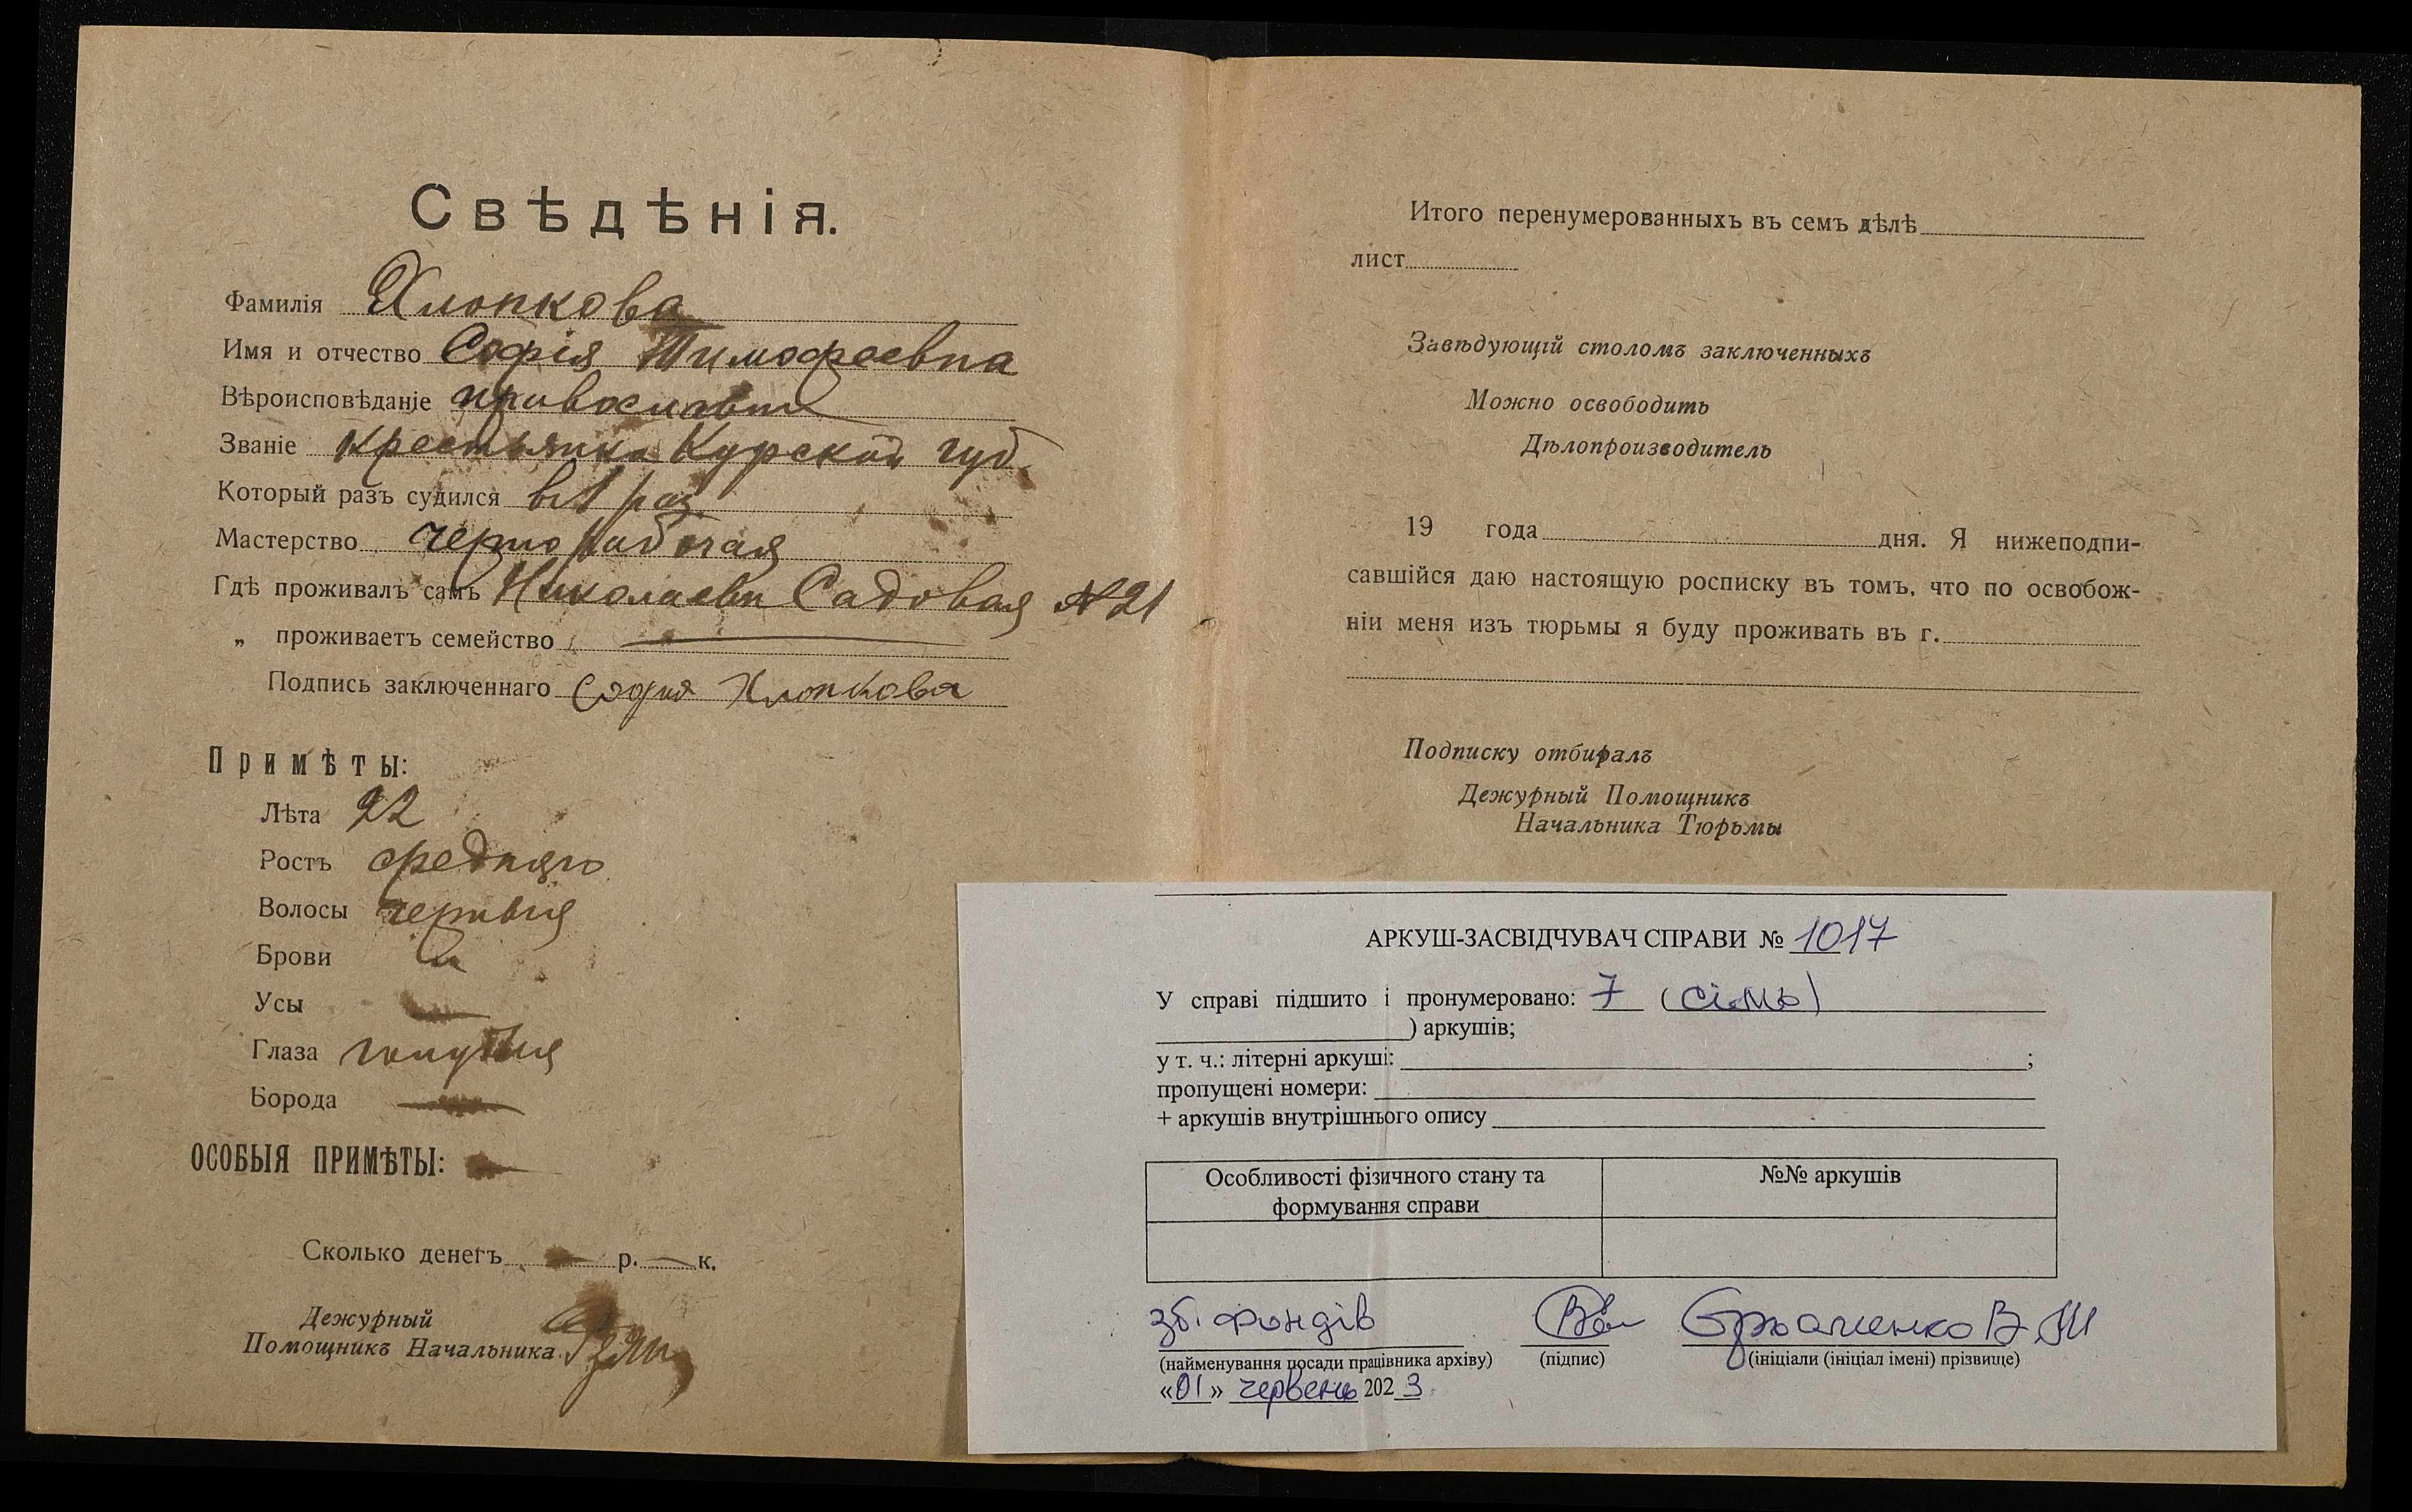 Свѣдѣнія.
Фамилія Хлопкова
Имя и отчество Софія Тимофеевна
Вѣроисповѣданіе православн
Званіе крестьянка Курской губ.
Который разъ судился в 1 раз
Мастерство чернорабочая
Гдѣ проживалъ самъ Николаевъ Садовая №21
„ проживаетъ семейство —
Подпись заключеннаго София Хлопкова
Примѣты:
Лѣта 22
Ростъ средняго
Волосы черныя
Брови "
Усы —
Глаза голубыя
Борода —
ОСОБЫЯ ПРИМѢТЫ: —
Сколько денегъ — р. — к.
Дежурный
Помощникъ Начальника
Итого перенумерованныхъ въ семъ дѣлѣ
лист
Завѣдующій столомъ заключенныхъ
Можно освободить
Дѣлопроизводитель
19 года дня. Я нижеподпи-
савшійся даю настоящую росписку въ томъ, что по освобож-
ніи меня изъ тюрьмы я буду проживать въ г.
Подписку отбиралъ
Дежурный Помощникъ
Начальника Тюрьмы
АРКУШ-ЗАСВІДЧУВАЧ СПРАВИ № 1017
У справі підшито і пронумеровано: 7 (сімь)
) аркушів;
у т. ч.: літерні аркуші: ;
пропущені номери:
+ аркушів внутрішнього опису
Особливості фізичного стану та
формування справи
№№ аркушів
зб. фондів
(найменування посади працівника архіву) (підпис) (ініціали (ініціал імені) прізвище)
«01» червень 2023